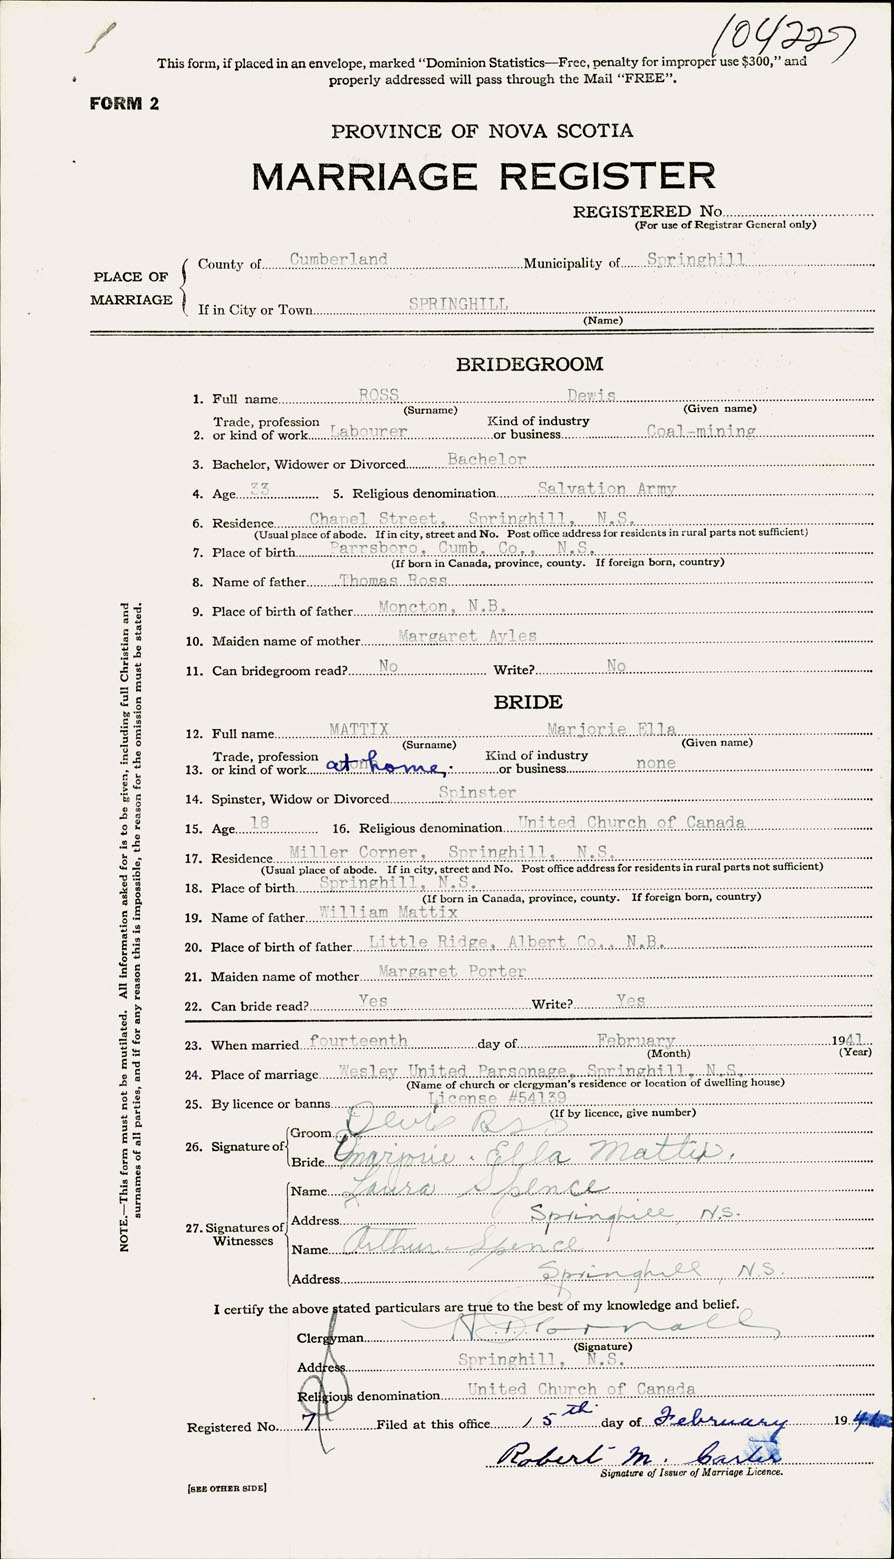 104227
This form, if placed in an envelope, marked “Dominion Statistics—Free, penalty for improper use $300,” and
properly addressed will pass through the Mail “FREE”.
FORM 2
PROVINCE OF NOVA SCOTIA
MARRIAGE REGISTER
REGISTERED No.
(For use of Registrar General only)
PLACE OF MARRIAGE
County of Cumberland Municipality of Springhill
If in City or Town SPRINGHILL
(Name)
BRIDEGROOM
1. Full name ROSS Dewis
(Surname) (Given name)
2. Trade, profession or kind of work Labourer Kind of industry or business Coal-mining
3. Bachelor, Widower or Divorced Bachelor
4. Age 33 5. Religious denomination Salvation Army
6. Residence Chapel Street, Springhill, N.S.
(Usual place of abode. If in city, street and No. Post office address for residents in rural parts not sufficient)
7. Place of birth Parrsboro, Cumb. Co., N.S.
(If born in Canada, province, county. If foreign born, country)
8. Name of father Thomas Ross
9. Place of birth of father Moncton, N.B.
10. Maiden name of mother Margaret Ayles
11. Can bridegroom read? No Write? No
BRIDE
12. Full name MATTIX Marjorie Ella
(Surname) (Given name)
13. Trade, profession or kind of work at home, Kind of industry or business none
14. Spinster, Widow or Divorced Spinster
15. Age 18 16. Religious denomination United Church of Canada
17. Residence Miller Corner, Springhill, N.S.
(Usual place of abode. If in city, street and No. Post office address for residents in rural parts not sufficient)
18. Place of birth Springhill, N.S.
(If born in Canada, province, county. If foreign born, country)
19. Name of father William Mattix
20. Place of birth of father Little Ridge, Albert Co., N.B.
21. Maiden name of mother Margaret Porter
22. Can bride read? Yes Write? Yes
23. When married fourteenth day of February 1941
(Month) (Year)
24. Place of marriage Wesley United Parsonage, Springhill, N.S.
(Name of church or clergyman’s residence or location of dwelling house)
25. By licence or banns License #54139
(If by licence, give number)
26. Signature of
Groom Ross
Bride Marjorie Ella Mattix.
27. Signatures of Witnesses
Name Laura Spence
Address Springhill, N.S.
Name Arthur Spence
Address Springhill, N.S.
I certify the above stated particulars are true to the best of my knowledge and belief.
Clergyman
(Signature)
Address Springhill, N.S.
Religious denomination United Church of Canada
Registered No. 7 Filed at this office 15th day of February 19
Robert M. Carter
Signature of Issuer of Marriage Licence.
[SEE OTHER SIDE]
NOTE.—This form must not be mutilated. All information asked for is to be given, including full Christian and
surnames of all parties, and if for any reason this is impossible, the reason for the omission must be stated.